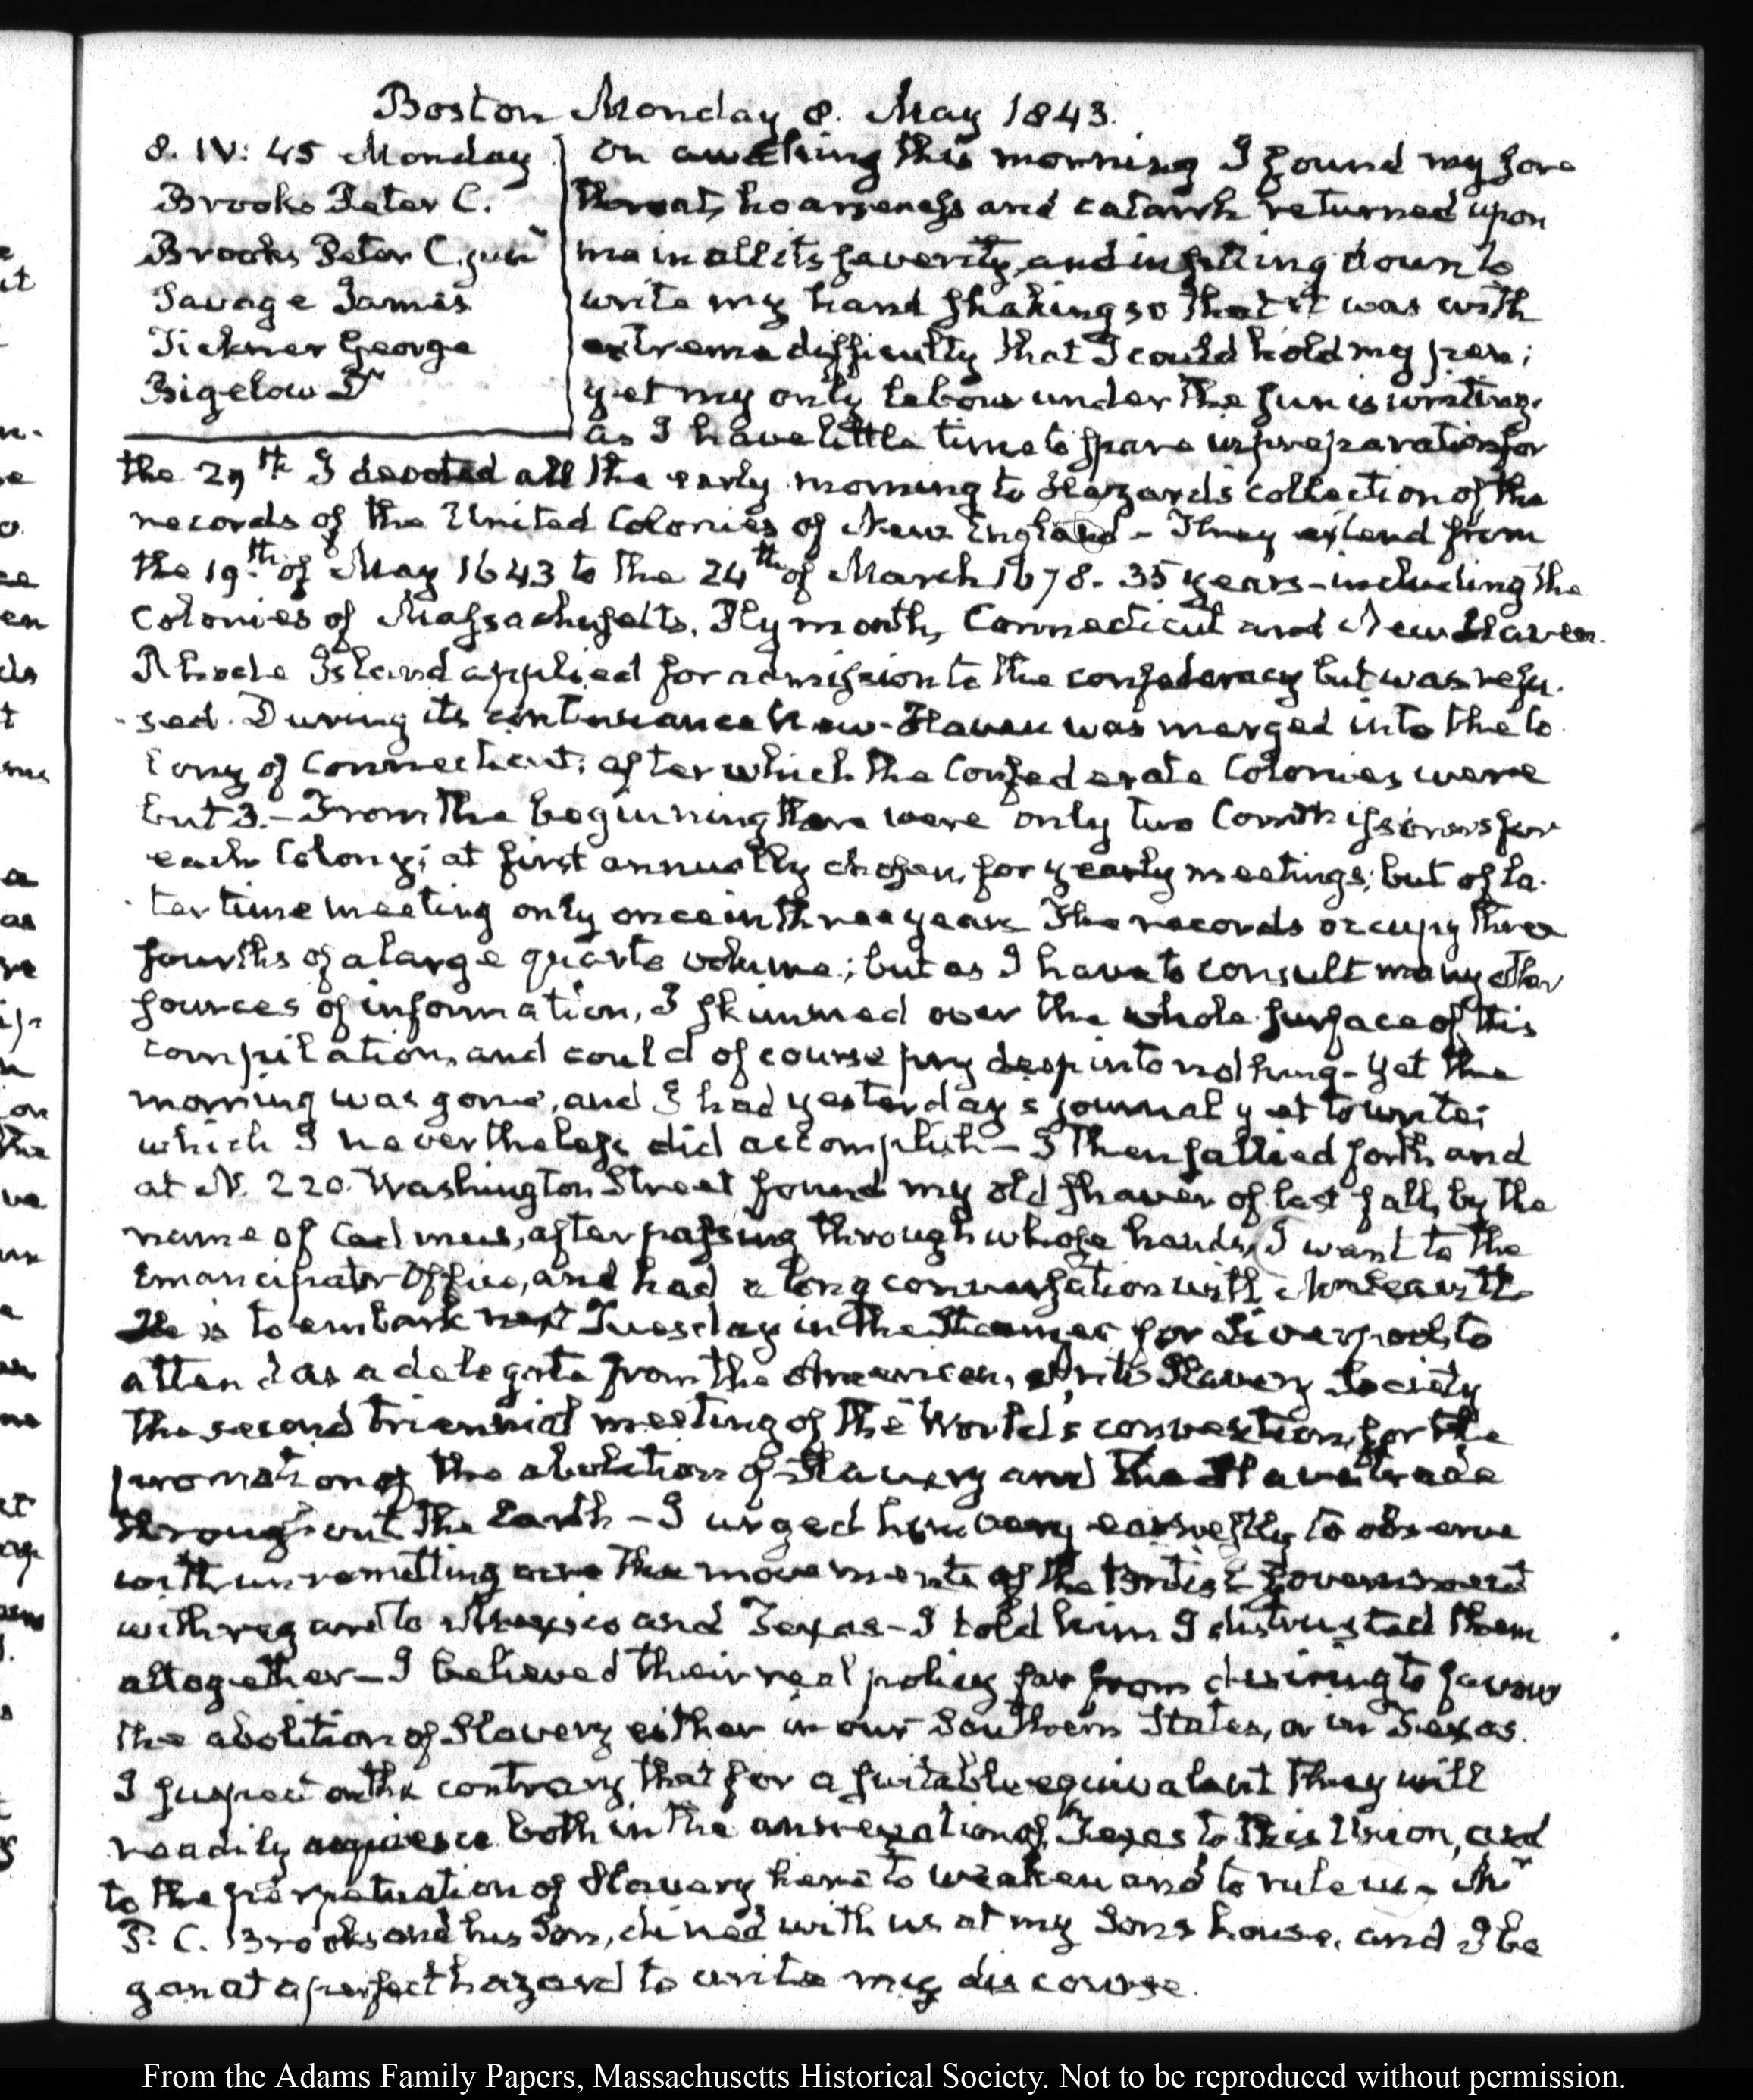 Boston Monday 8. May 1843.
8. IV: 45 Monday
Brooks Peter C.
Brooks Peter C. junr
Savage James
Ticknor George
Bigelow Dr
On awaking this morning I found my sore
throat, hoarseness and catarrh returned upon
me in all its severity, and in sitting down to
write my hand shaking so that it was with
extreme difficulty that I could hold my pen;
yet my only labour under the sun is writing.
As I have little time to spare in preparation for
the 29th I devoted all the early morning to Hazard's collection of the
records of the United Colonies of New England - They extend from
the 19th of May 1643 to the 24th of March 1678. 35 years - including the
Colonies of Massachusetts, Plymouth, Connecticut and New Haven.
Rhode Island applied for admission to the confederacy but was refu-
-sed. During its continuance New-Haven was merged into the Co
lony of Connecticut: after which the Confederate Colonies were
but 3. - From the beginning there were only two Commissioners for
each Colony; at first annually chosen, for yearly meetings; but of la-
-ter time meeting only once in three years The records occupy three
fourths of a large quarto volume; but as I have to consult many other
sources of information, I skimmed over the whole surface of this
compilation, and could of course pry deep into nothing - Yet the
morning was gone, and I had yesterday's journal yet to write;
which I nevertheless did accomplish - I then sallied forth and
at N. 220. Washington Street found my old shaver of last fall, by the
name of Cadmus, after passing through whose hands, I went to the
Emancipator Office, and had a long conversation with Mr Leavitt
He is to embark next Tuesday in the Steamer for Liverpool, to
attend as a delegate from the American, Anti Slavery Society
the second triennial meeting of the World's convention, for the
promotion of the abolition of Slavery and the Slave trade
throughout the Earth - I urged him very earnestly to observe
with unremitting care the movements of the British Government
with regard to Mexico and Texas - I told him I distrusted them
altogether - I believed their real policy far from desiring to favour
the abolition of Slavery either in our Southern States, or in Texas.
I suspect on the contrary that for a suitable equivalent they will
readily acquiesce both in the annexation of Texas to this Union, and
to the perpetuation of Slavery here to weaken and to rule us - Mr
P. C. Brooks and his Son, dined with us at my Sons house, and I be
gan at a perfect hazard to write my discourse.
From the Adams Family Papers, Massachusetts Historical Society. Not to be reproduced without permission.